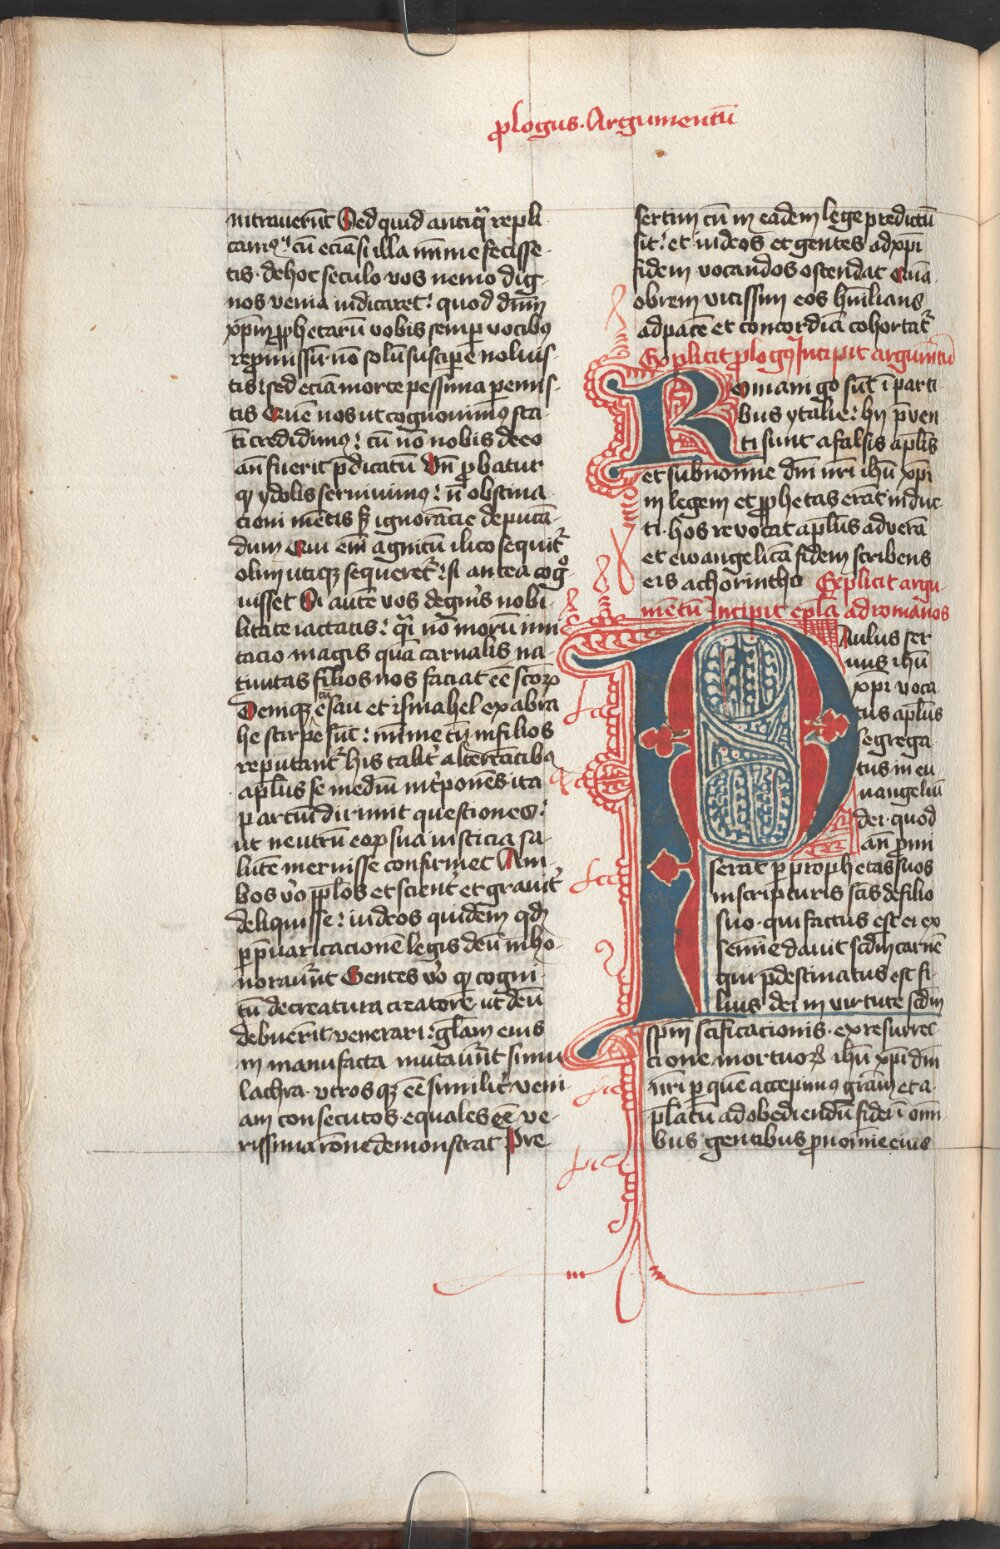 ꝓlogus · Argumentū
intrauerūt Sed quid antiqͣ repli-
camꝰ: cū eciā si illa mīnime fecisse-
tis · de hoc seculo vos nemo dig-
nos venia iudicaret: quod dn̄m
xp̄m ꝓphetarū vobis semꝑ vocibꝰ
repromissū: nō solū suscipere noluis-
tis: sed eciā morte pessima pemis-
tis Quē nos ut cognouimꝰ sta-
tī credidimꝰ: cū nō nobis de eo
an̄ fuerit p̄dicatū Vn̄ ꝓbatur
ꝙ ydolis seruiuimꝰ: nō obstina-
cioni mētis sꝫ ignorācie deputā-
dum Qui em̄ agnitū ilico sequit᷑
olim utiqꝫ sequeret᷑: si antea cog
uisset Si autē vos de gnꝰis nobi-
litate iactatis: qͣ nō moru imi
tacio magis quā carnalis na-
tiuitas filios nos faciat eē sctōꝝ
Deniqꝫ esau et ismahel ex abra
he stirpe sūt: mīnime tn̄ in filios
reputant᷑ his talit᷑ altercātibꝰ
apl̄us se mediū int᷑ponēs ita
partiū dirimit questiones:
ut neutrū eoꝝ sua iusticia sa-
lutē meruisse confirmet Am-
bos vͦo ppl̄os et scient᷑ et grauit᷑
deliquisse: iudeos quidem ꝙ
p̱ p̄uaricacionē legis deū inho-
norauer̄t Gentes vͦo ꝙ cogni-
tū de creatura creatorē ut deū
debuerīt venerari: glām eius
in manufacta mutauer̄t simu
lachra · vtrosqꝫ eē similit᷑ veni-
am consecutos equales eē ve-
rissima rōne demonstrat Pre
sertim cū in eadem lege predictū
sit: et iudeos et gentes ad xp̄i
fidem vocandos ostendat Quā
obrem vicissim eos humilians
ad pacē et concordiā cohortat᷑
Explicit ꝓlogꝰ Incipit argumētū
Romani go sūt ī parti-
bus ytalie: hij p̄uen
ti sunt a falsis apl̄is
et sub nomine dn̄i nr̄i ihū xp̄i
in legem et ꝓphetas erāt induc-
ti · hos reuocat apl̄us ad verā
et ewangelicā fidem scribens
eis a chorintho Explicit argu-
mētū Incipit epl̄a ad romanos
Paulus ser
uus ihū
xp̄i voca
tus apl̄us
segrega
tus in eu
uangeliū
dei · quod
an̄ p̱mi
serat p̱ prophetas suos
in scripturis sc̄is de filio
suo · qui factus est ei ex
semine dauit scd̄m carnē
qui p̄destinatus est fi-
lius dei in virtute scd̄m
sp̄m sc̄ificacionis · ex resurrec-
cione mortuoꝝ ihū xp̄i dn̄i
nr̄i p̱ quē accepimꝰ grām et a-
p̱latū ad obediendū fidei ī omī
bus gentibus ꝓ nomine eius